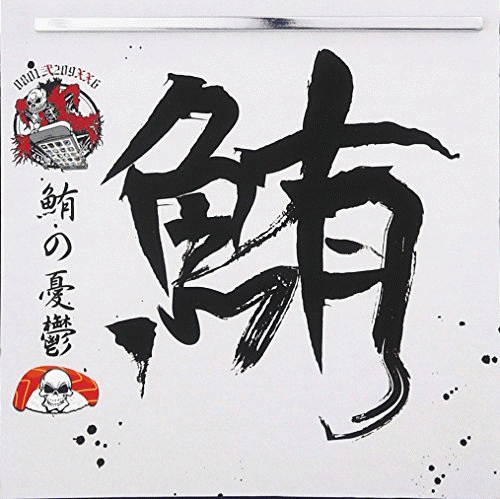 鮪
0801弐209XX6
鮪の憂鬱